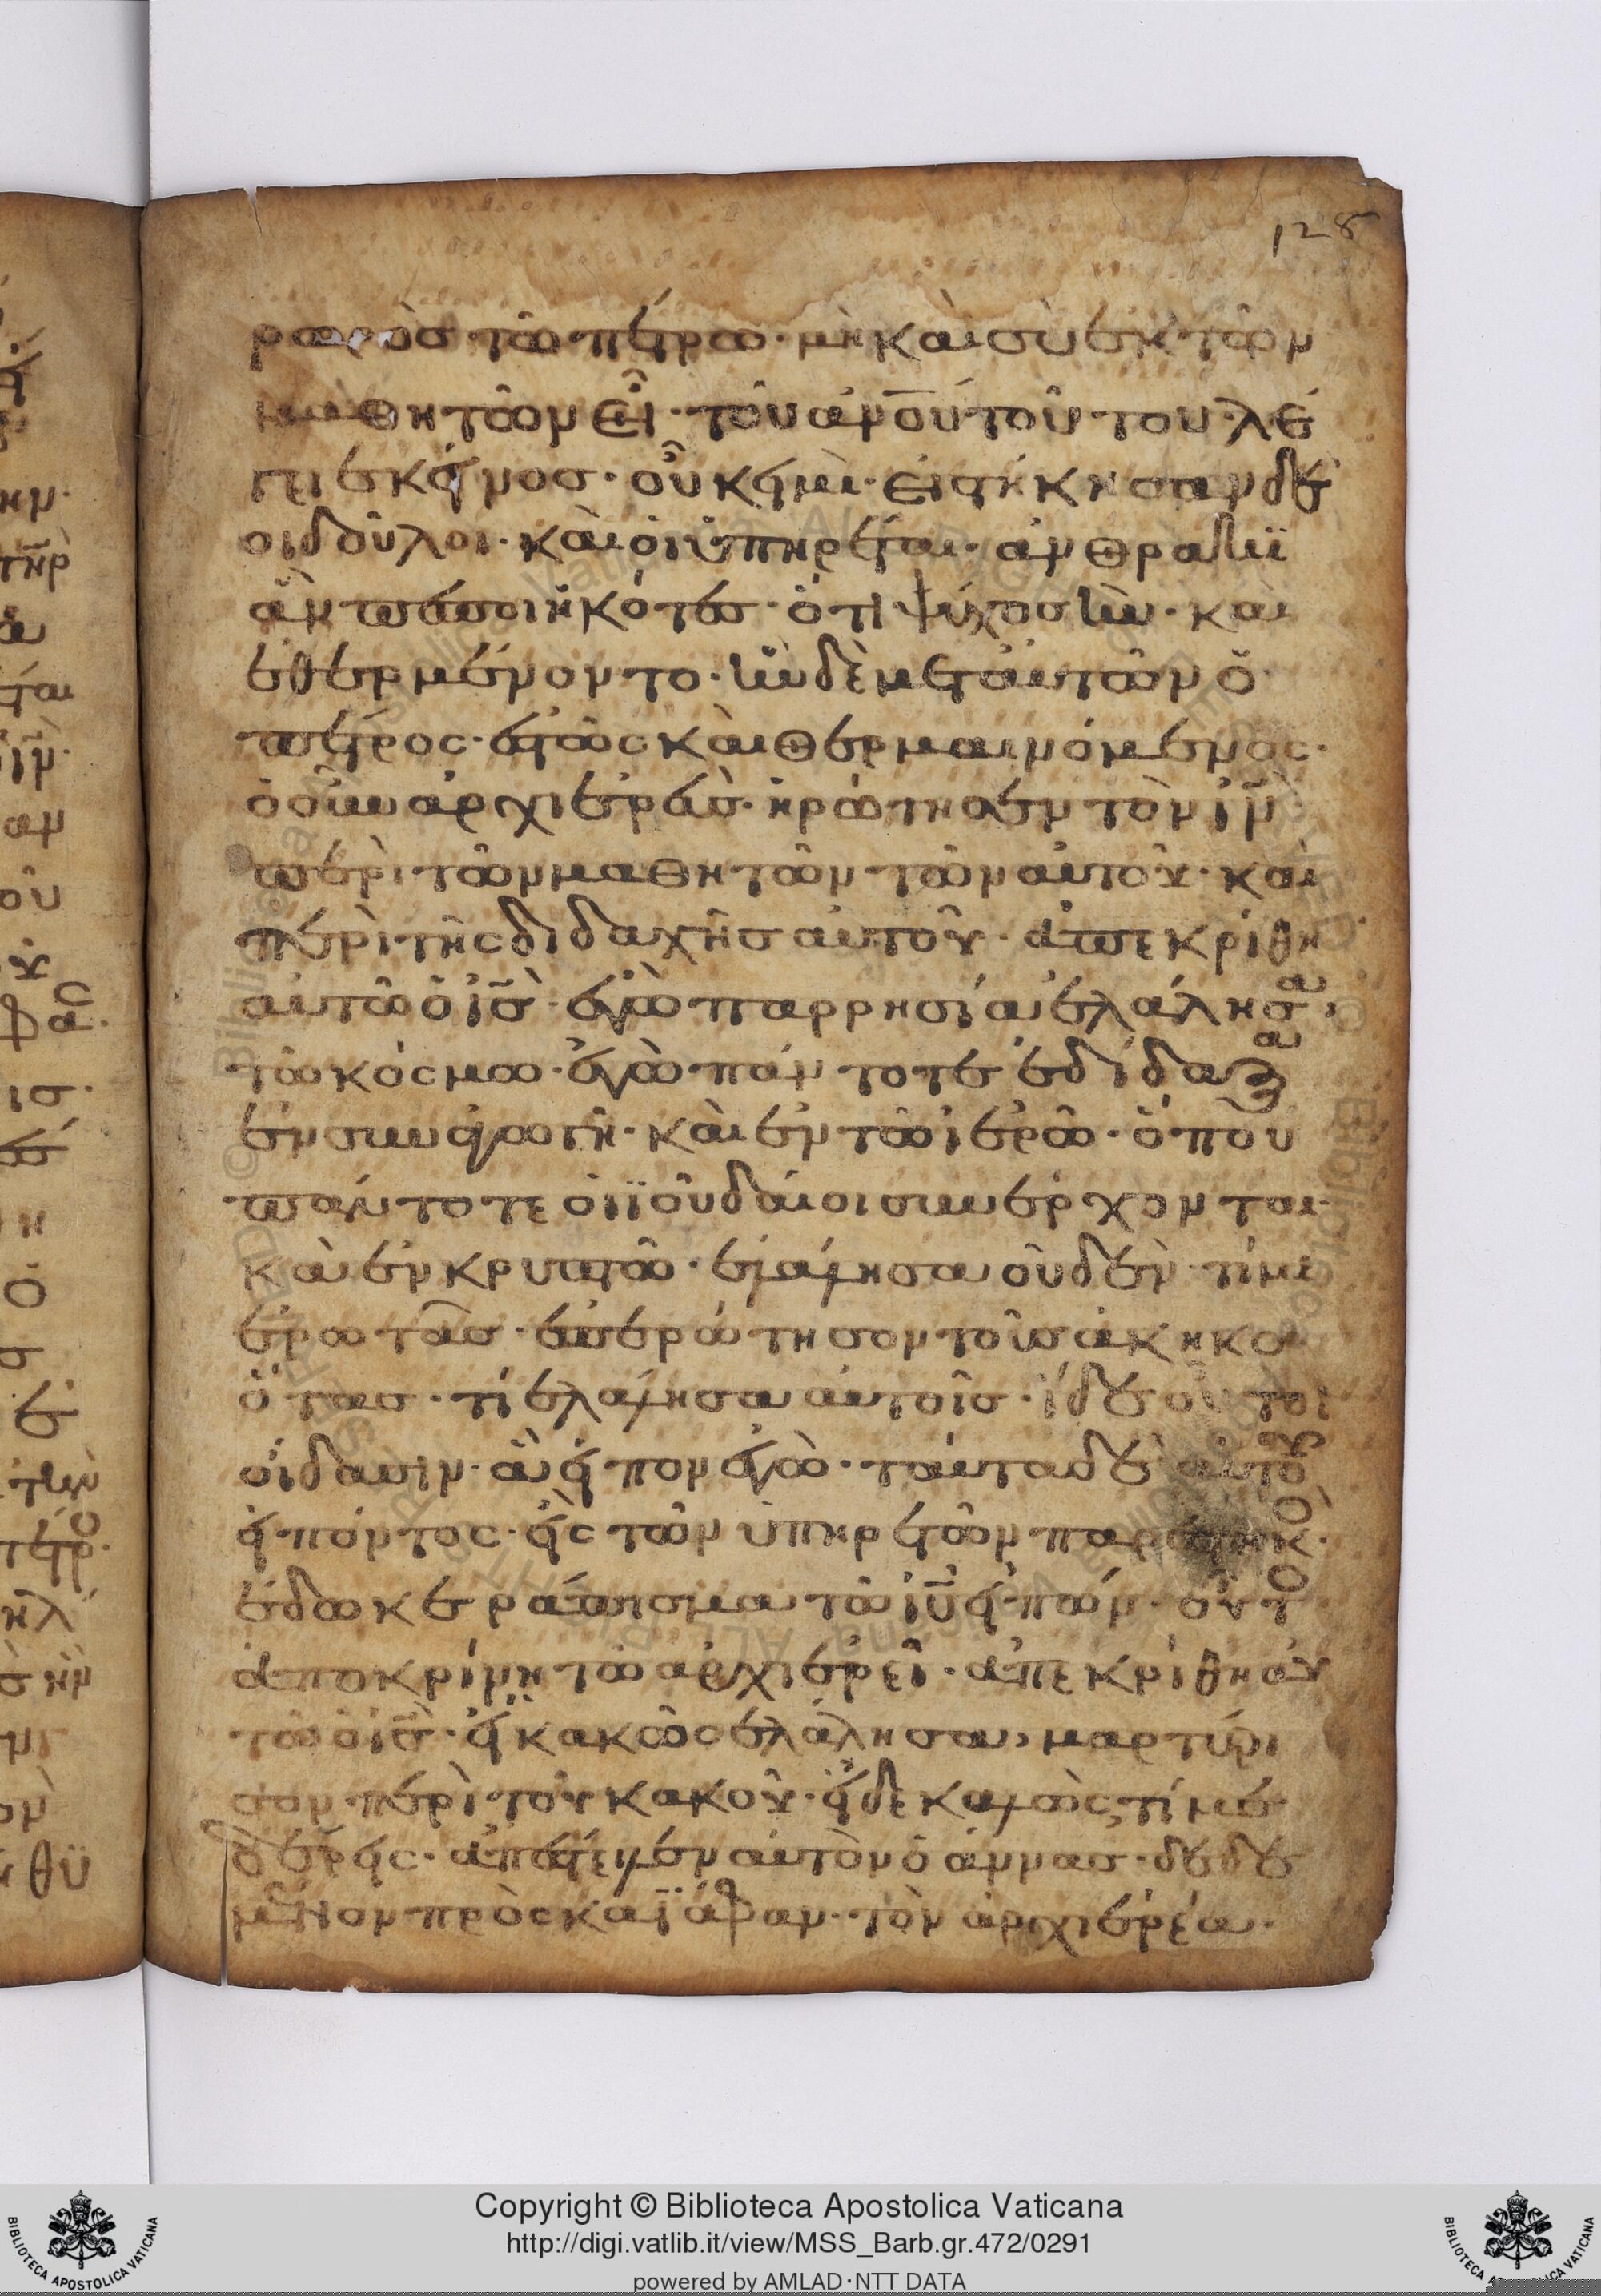 128
ρωρὸσ τῶ πέτρω· μὴ καὶ σὺ ἐκ τῶν
μαθητῶν εἶ· τοῦ ἀνου τούτου· λέ
γει ἐκεῖνοσ· οὐκ εἰμὶ· εἱστήκησαν δὲ
οἱ δοῦλοι· καὶ οἱ ὑπηρέται· ἀνθρακϊ
ὰν πεποιηκότεσ· ὅτι ψύχοσ ἦν· καὶ
ἐθερμένοντο· ἦν δὲ μετ αυτῶν ὁ
πέτρος· ἑστὼς καὶ θερμαινόμενος·
ὁ οὖν ἀρχιερεὺσ· ἠρώτησεν τὸν ιν
περὶ τῶν μαθητῶν τῶν αὐτοῦ· καὶ
περὶ τῆς διδαχῆσ αὐτοῦ· ἀπεκρίθη
αὐτῶ ὁ ισ· ἐγὼ παρρησία ἐλάλησα
τῶ κόσμω· ἐγὼ πάντοτε ἐδίδαξα
ἐν συναγωγῆ· καὶ ἐν τῶ ἱερῶ· ὅπου
πάντοτε οἱ ϊουδαίοι συνέρχονται·
καὶ ἐν κρυπτῶ· ἐλάλησα οὐδὲν· τί με
ἐρωτᾶσ· ἐπερώτησον τοὺσ ἀκηκο
ότασ· τί ἐλάλησα αὐτοῖσ· ἴδε οὗτοι
οἴδασιν· ἃ εἶπον ἐγὼ· ταῦτα δὲ αὐτοῦ
εἰπόντος· εἷς τῶν ὑπηρετῶν παρεστηκὸ·
ἔδωκε ράπισμα τῶ ιυ εἰπών· οὕτο
ἀποκρίνη τῶ ἀρχιερεῖ· ἀπεκρίθη αὐ
τῶ ὁ ισ· εἰ κακῶς ἐλάλησα, μαρτύρι
σον περὶ τοῦ κακοῦ· εἰ δε καλῶς, τί με
δέρεις· ἀπέστειλεν αὐτὸν ὁ ἄννασ· δεδε
μένον πρὸς καϊάφαν· τὸν ἀρχιερέα·
Copyright © Biblioteca Apostolica Vaticana
http://digi.vatlib.it/view/MSS_Barb.gr.472/0291
powered by AMLAD·NTT DATA